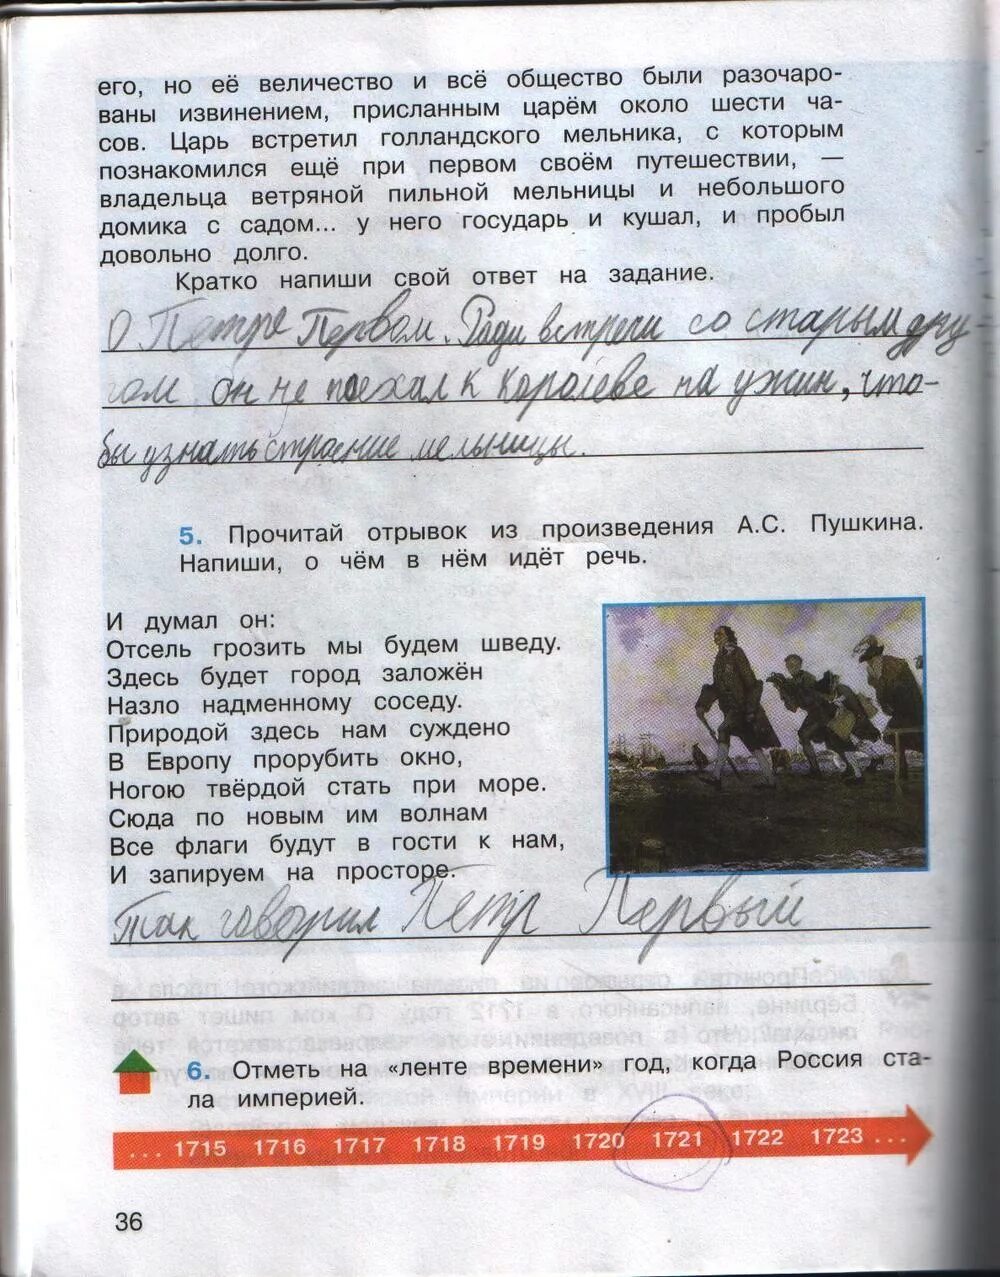 его, но её величество и всё общество были разочаро-
ваны извинением, присланным царём около шести ча-
сов. Царь встретил голландского мельника, с которым
познакомился ещё при первом своём путешествии, —
владельца ветряной пильной мельницы и небольшого
домика с садом... у него государь и кушал, и пробыл
довольно долго.
Кратко напиши свой ответ на задание.
О Петре Первом. Ради встречи со старым дру
гом он не поехал к королеве на ужин, что-
бы узнать строение мельницы.
5. Прочитай отрывок из произведения А.С. Пушкина.
Напиши, о чём в нём идёт речь.
И думал он:
Отсель грозить мы будем шведу.
Здесь будет город заложён
Назло надменному соседу.
Природой здесь нам суждено
В Европу прорубить окно,
Ногою твёрдой стать при море.
Сюда по новым им волнам
Все флаги будут в гости к нам,
И запируем на просторе.
Так говорил Петр Первый
6. Отметь на «ленте времени» год, когда Россия ста-
ла империей.
... 1715 1716 1717 1718 1719 1720 1721 1722 1723 ...
36